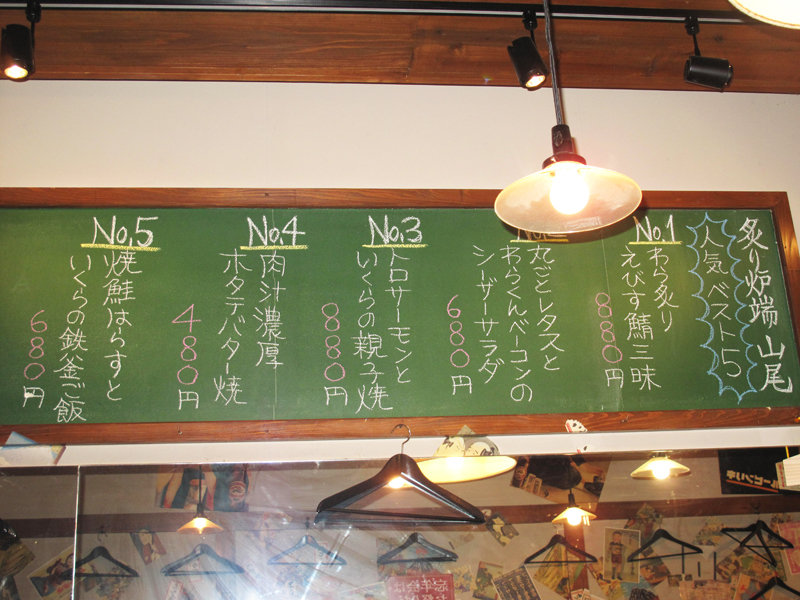 炙り炉端 山尾
人気ベスト5
No.1
わら炙り
えびす鯖三昧
880円
丸ごとレタスと
わらくんベーコンの
シーザーサラダ
680円
No.3
トロサーモンと
いくらの親子焼
880円
No.4
肉汁濃厚
ホタテバター焼
480円
No.5
焼鮭はらすと
いくらの鉄釜ご飯
680円